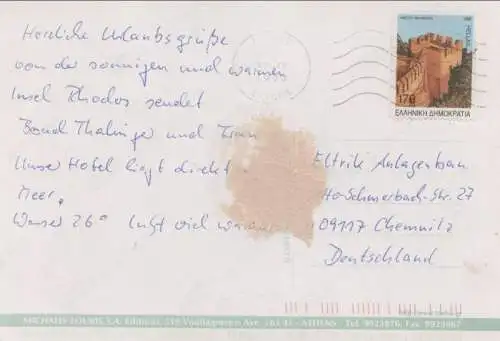 Herzliche Urlaubsgrüße
von der sonnigen und warmen
Insel Rhodos sendet
und Frau
Unser Hotel liegt direkt
Meer.
Wasser 26° Luft viel
HELLAS
170
ΕΛΛΗΝΙΚΗ ΔΗΜΟΚΡΑΤΙΑ
Eltrik Anlagenbau
Str. 27
09117 Chemnitz
Deutschland
MICHALIS TOUBIS S.A. Vouliagmenis Ave. ATHENS Tel. 9923876, Fax 9923867